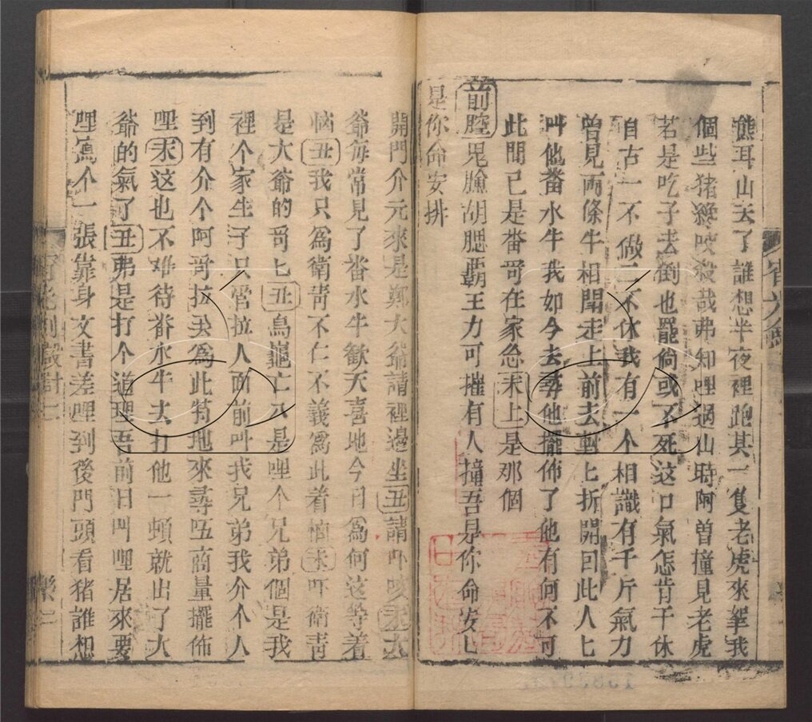 誰耳山去了誰想半夜裡跑其一隻老虎來拏我
個些猪纔咬殺哉弗知哩過山時阿曾撞見老虎
若是吃子去倒也罷倘或不死这口氣怎肯干休
自古一不做二不休我有一个相識有千斤氣力
曾見兩條牛相鬪走上前去暫匕折開回此人匕
叫他畨水牛我如今去尋他擺佈了他有何不可
此間已是畨哥在家怎末上是那個
前腔 毘臉胡腮覇王力可摧有人撞吾是你命安匕
是你命安排
開門介元來是鄭大爺請裡邊坐丑請吓
爺每常見了畨水牛歡天喜地今日為何这等着
惱丑我只為衛青不仁不義為此着惱末吓衛青
是大爺的哥匕丑鳥龜亡八是哩个兄弟個是我
裡个家生子只管拉人面前叫我兄弟我介个人
到有介个阿哥拉 為此特地來尋 商量擺佈
哩末这也不难待畨水牛去打他一頓就出了大
爺的氣了丑弗是打个道理吾前日叫哩居來要
哩寫个一張靠身文書差哩到後門頭看猪誰想